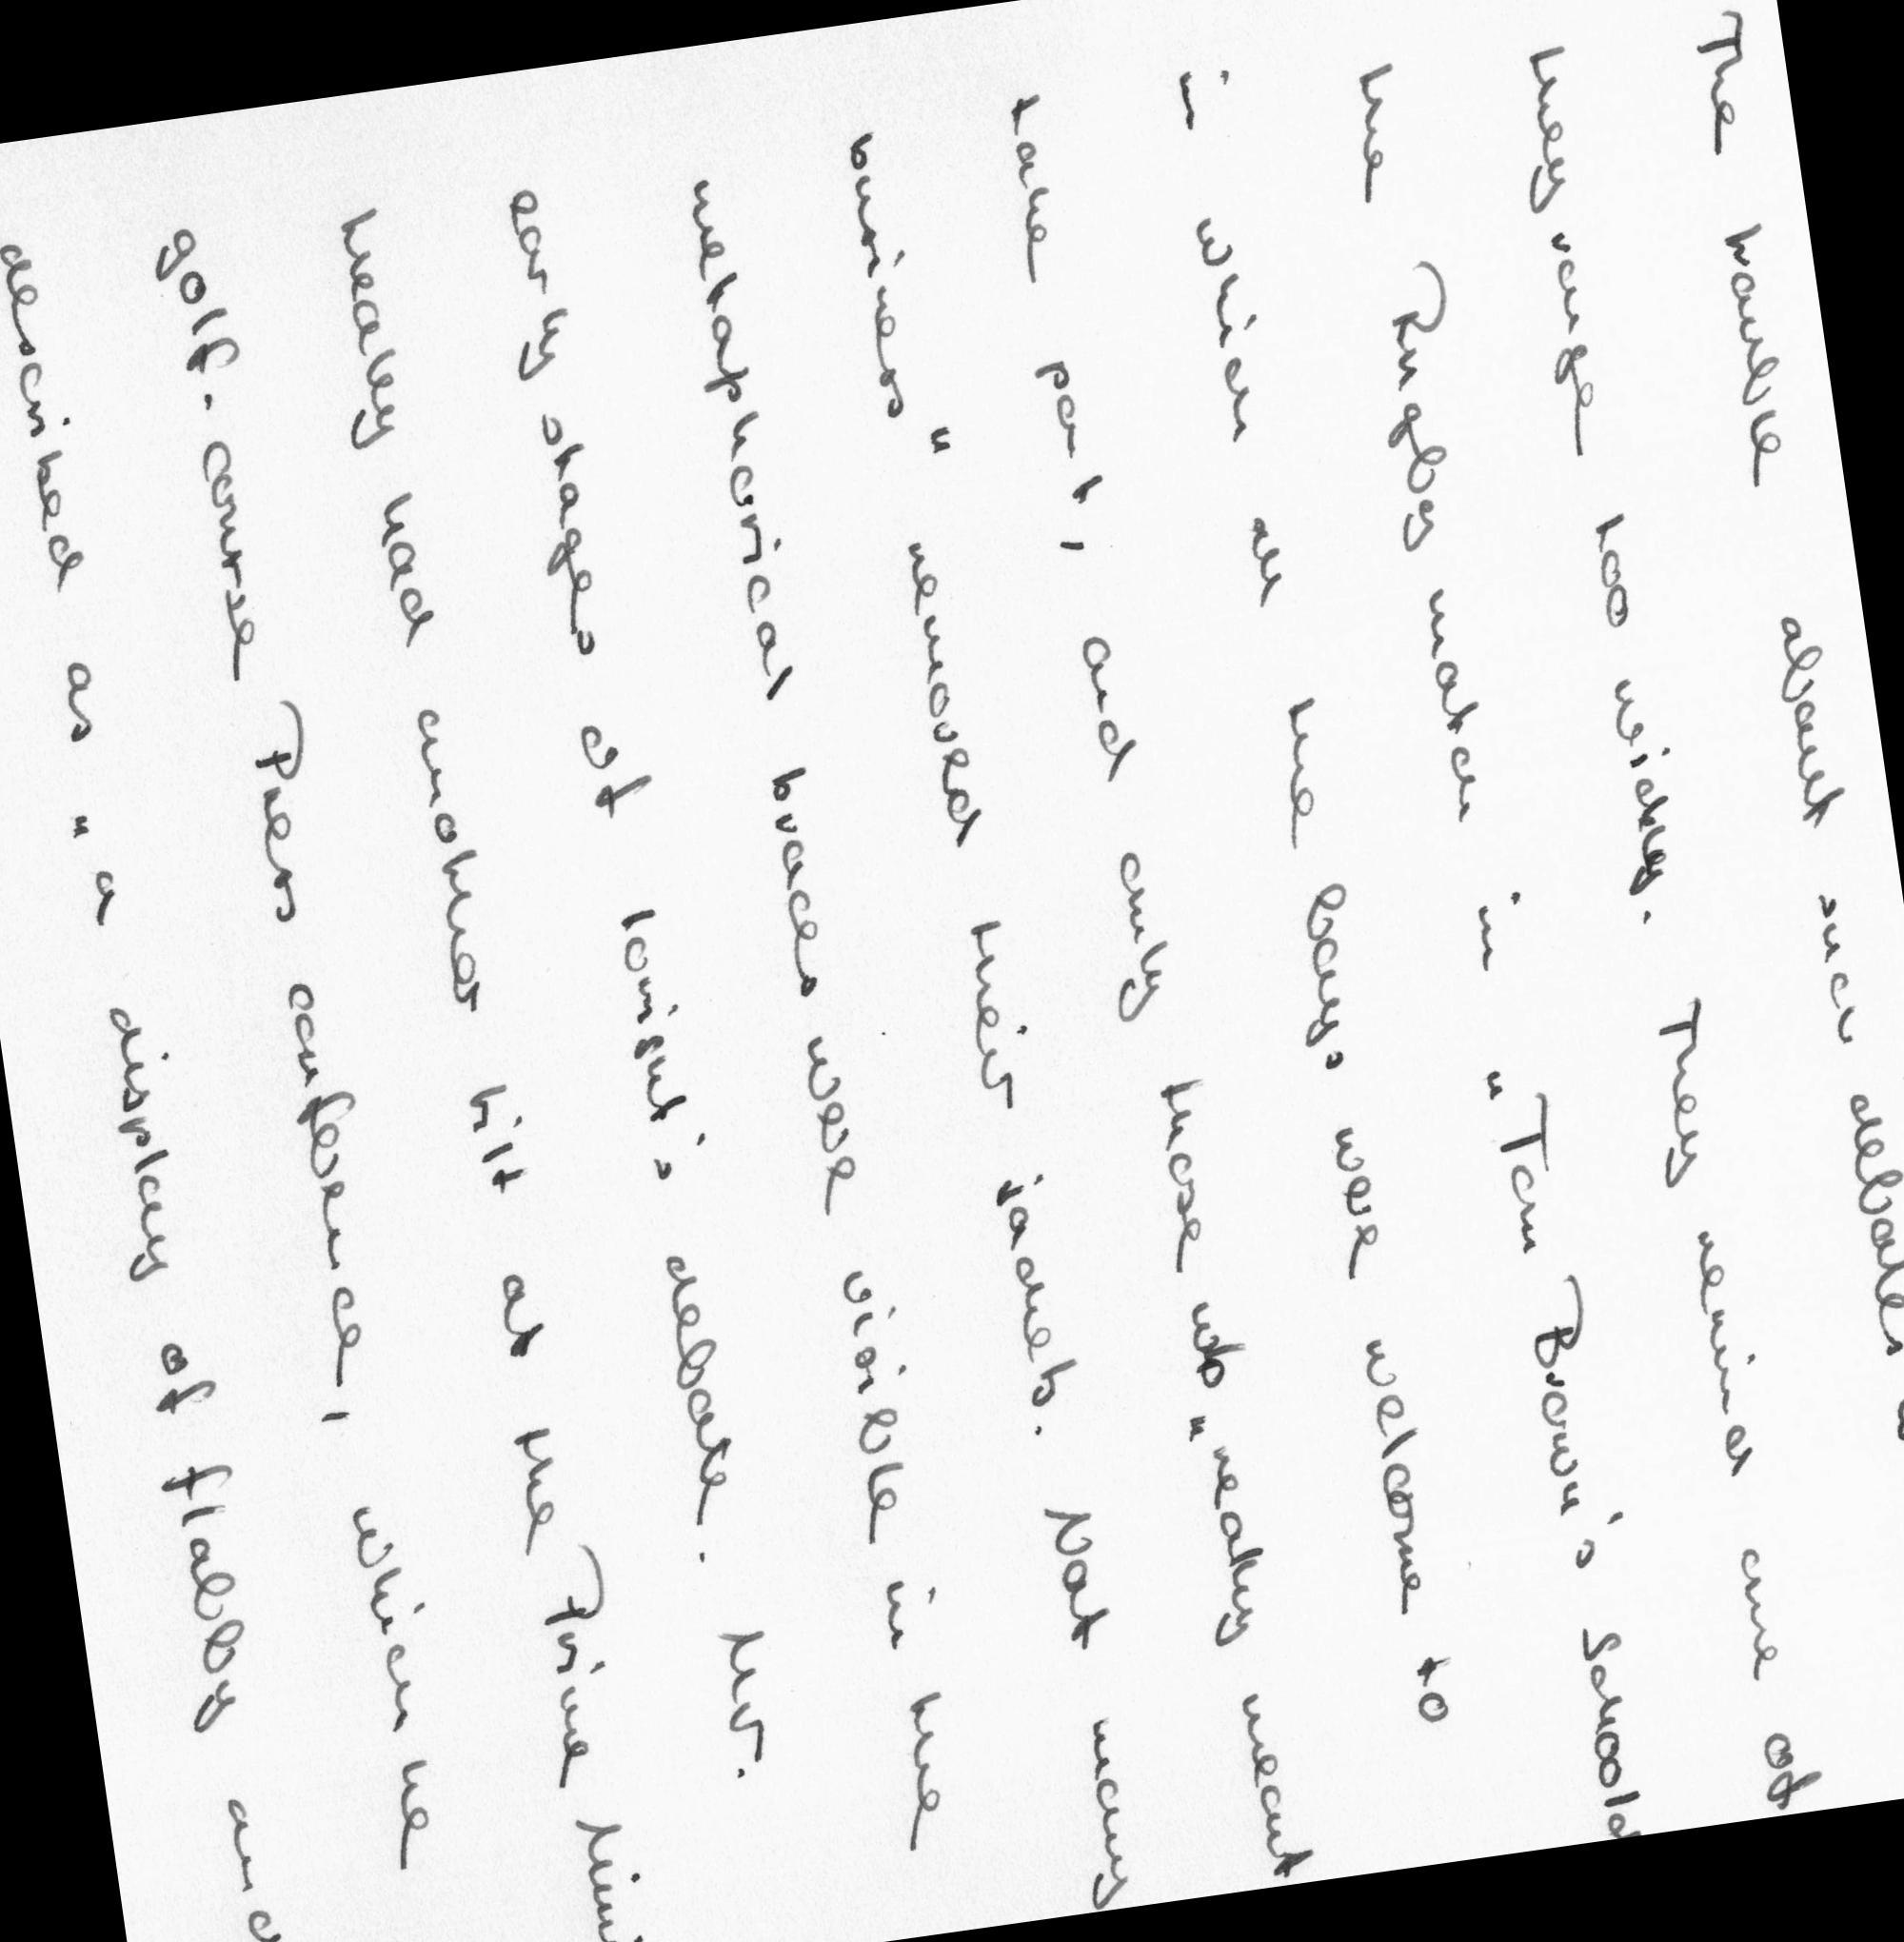 The trouble about such debates
they range too widely. They remind one of
the Rugby match in "Tom Brown's Schoold
in which all the boys were welcome to
take part, and only those who "really meant
business" removed their jackets. Not many
metaphorical braces were visible in the
early stages of tonight's debate. Mr.
Healey had another tilt at the Prime Mini
golf-course Press conference, which he
described as "a display of flabby and